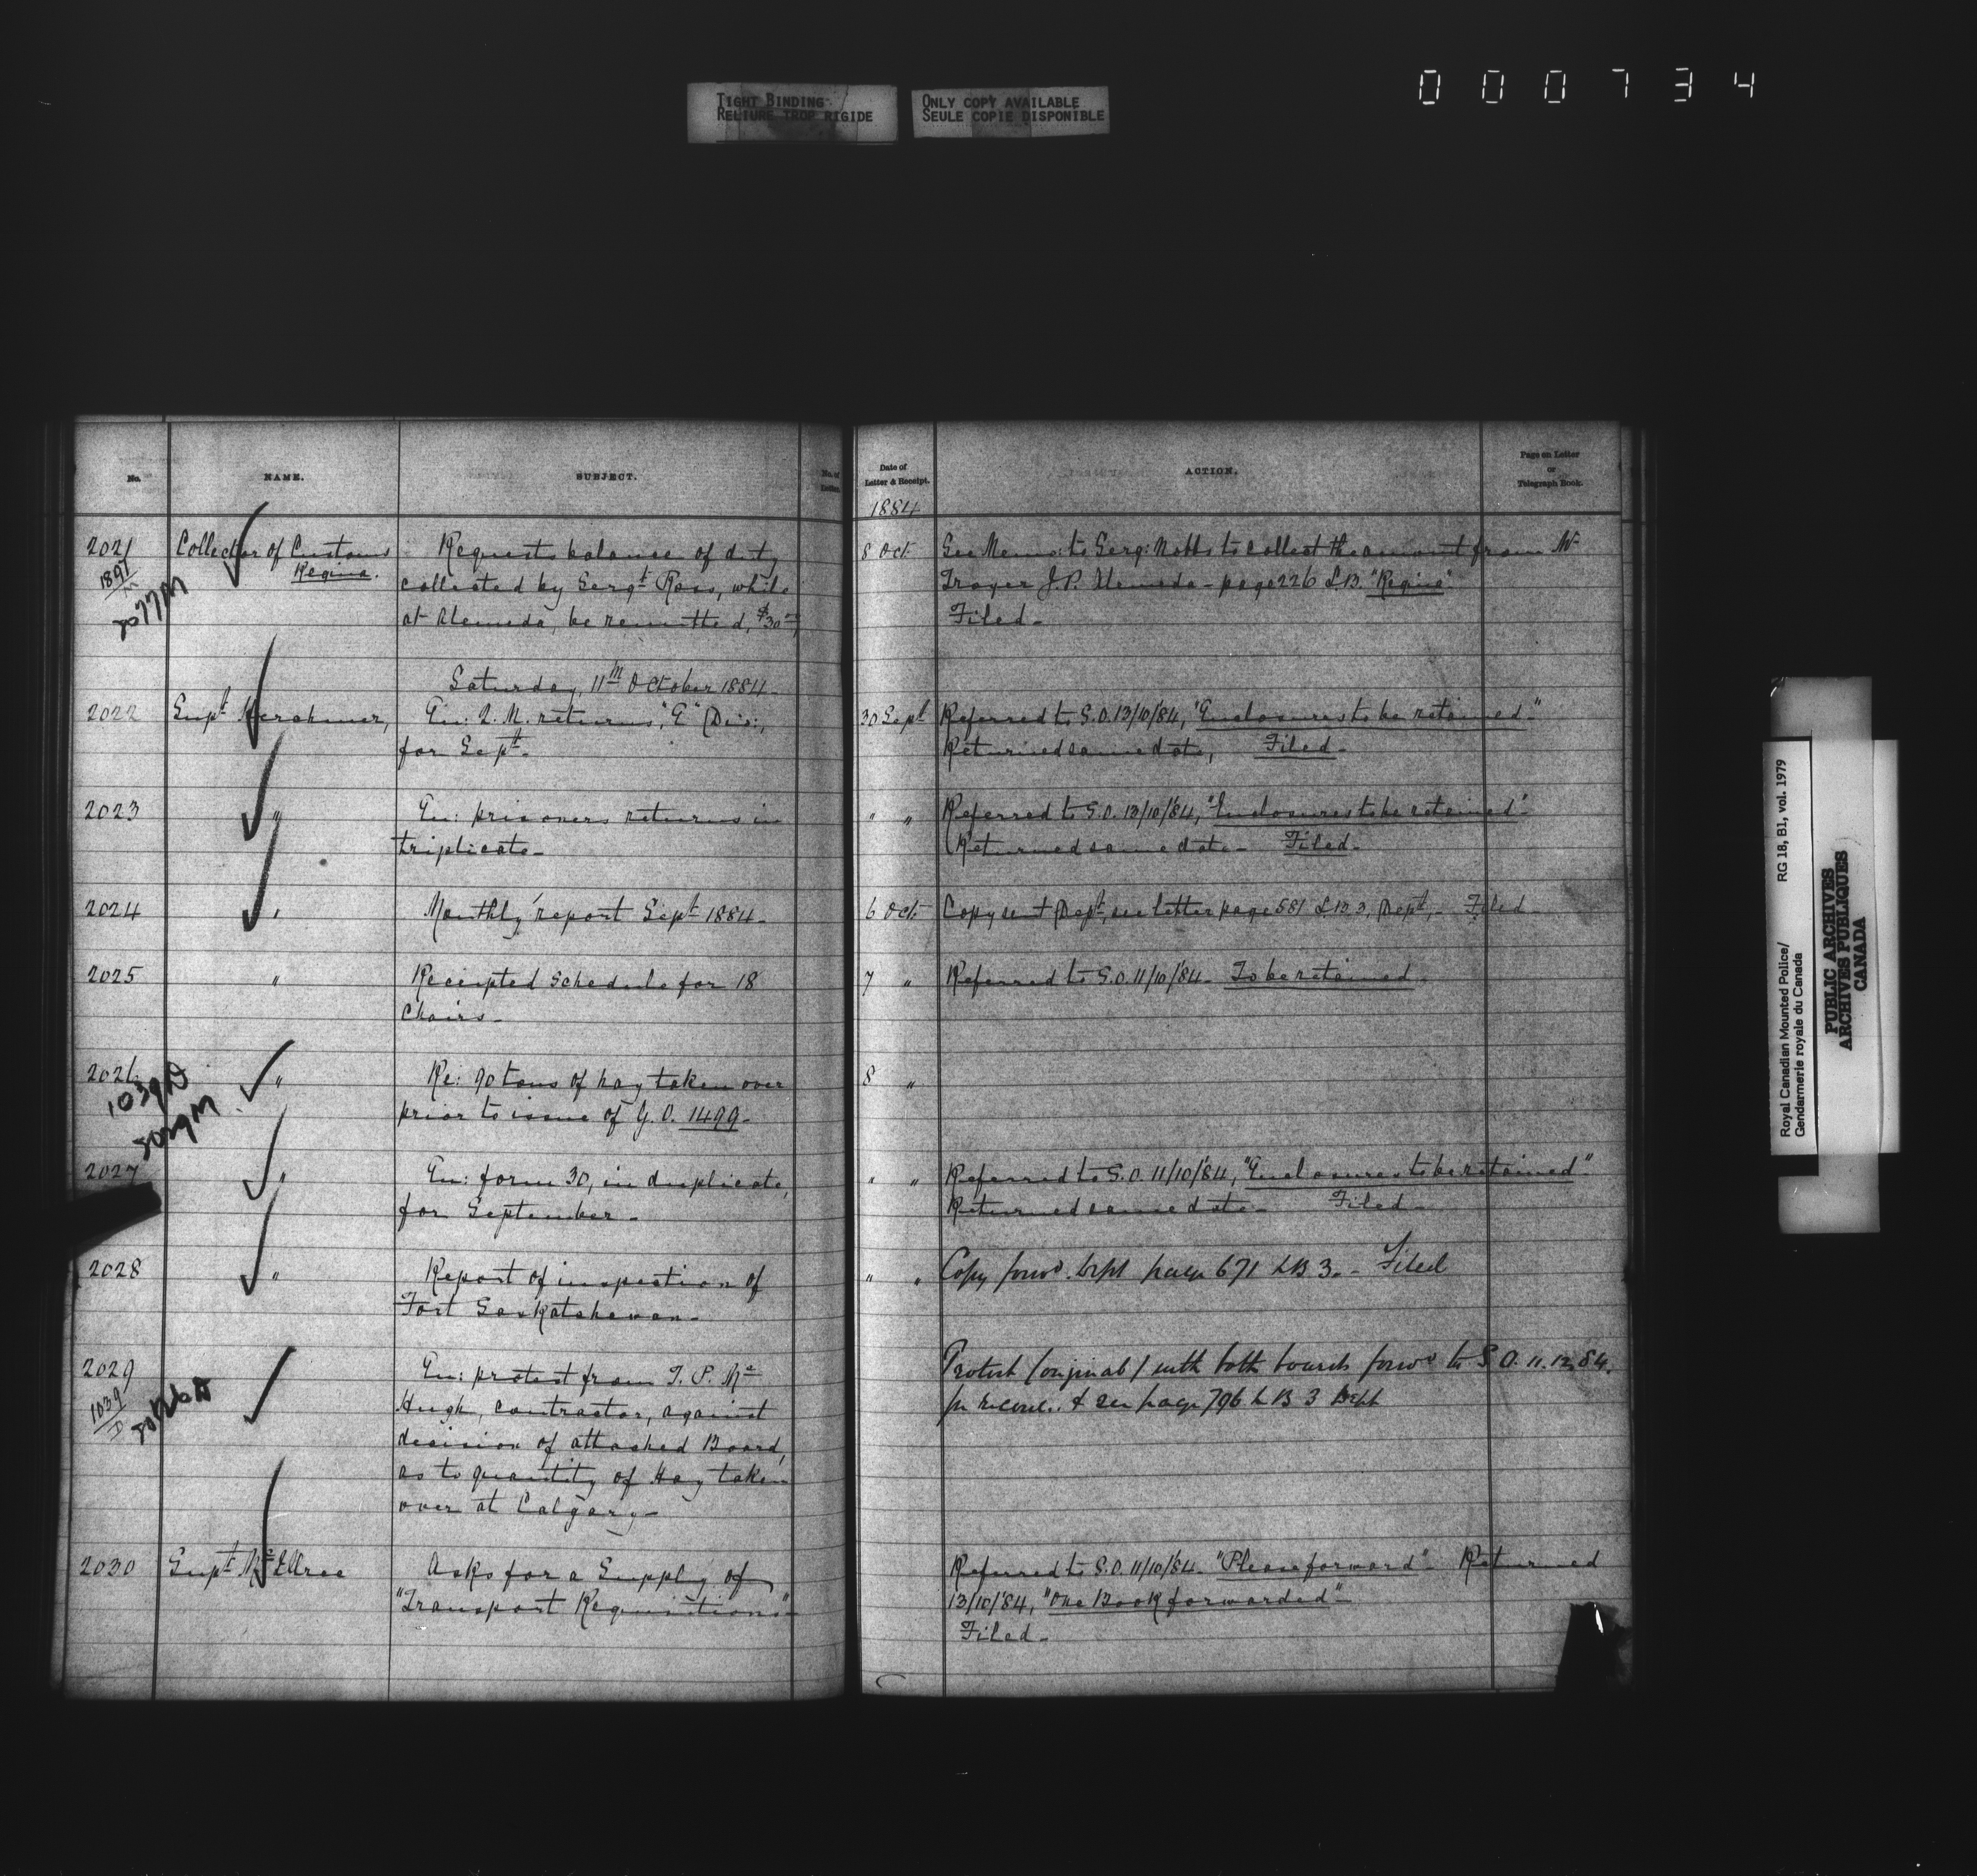 000734
TIGHT BINDING
RELIURE TROP RIGIDE
ONLY COPY AVAILABLE
SEULE COPIE DISPONIBLE
No.
NAME.
SUBJECT.
No. of
Letter.
Date of
Letter & Receipt.
ACTION.
Page on Letter
or
Telegraph Book.
1884
2021
1897
M
2077M
Collector of Customs
Regina.
Requests balance of duty
collected by Sergt Ross, while
at Alameda, be remitted, $30
8 Oct.
See Memo: to Serg: Nobbs to collect the amount from Mr
Troyer J.P. Alameda - page 226 L.B. "Regina"
Filed -
Saturday, 11th October 1884 -
2022
Supt Herchmer,
En: Q. M. returns, "E" Div:,
for Sept. -
30 Sept
Referred to S.O. 13/10/84, "Enclosures to be retained -"
Returned same date, Filed -
2023
"
En: prisoners returns in
triplicate -
" "
Referred to S.O. 13/10/84, "Enclosures to be retained"
Returned same date - Filed -
2024
"
Monthly report Sept 1884 -
6 Oct.
Copy sent Dept, see letter page 581 L.B. 3, Dept, - Filed -
2025
"
Receipted Schedule for 18
Chairs -
7 "
Referred to S.O. 11/10/84 - To be retained
2026
1039D
2029M
"
Re: 90 tons of hay taken over
prior to issue of G.O. 1499 -
8 "
2027
"
En: form 30, in duplicate,
for September -
" "
Referred to S.O. 11/10/84, "Enclosures to be retained"
Returned same date - Filed -
2028
"
Report of inspection of
Fort Saskatchewan -
" "
Copy forwd. Dept page 671 LB 3. - Filed
2029
1039
D
En: protest from T. P. Mc
Hugh, contractor, against
decision of attached Board,
as to quantity of Hay taken
over at Calgary -
Protest (original) with both boards forwd to S.O. 11.12.84.
& see page 796 L B 3 Dept
2030
Supt McIllree
Asks for a Supply of
"Transport Requisitions" -
Referred to S.O. 11/10/84 - "Please forward" - Returned
13/10/84, "One Book forwarded" -
Filed -
Royal Canadian Mounted Police/ RG 18, B1, vol. 1979
Gendarmerie royale du Canada
PUBLIC ARCHIVES
ARCHIVES PUBLIQUES
CANADA